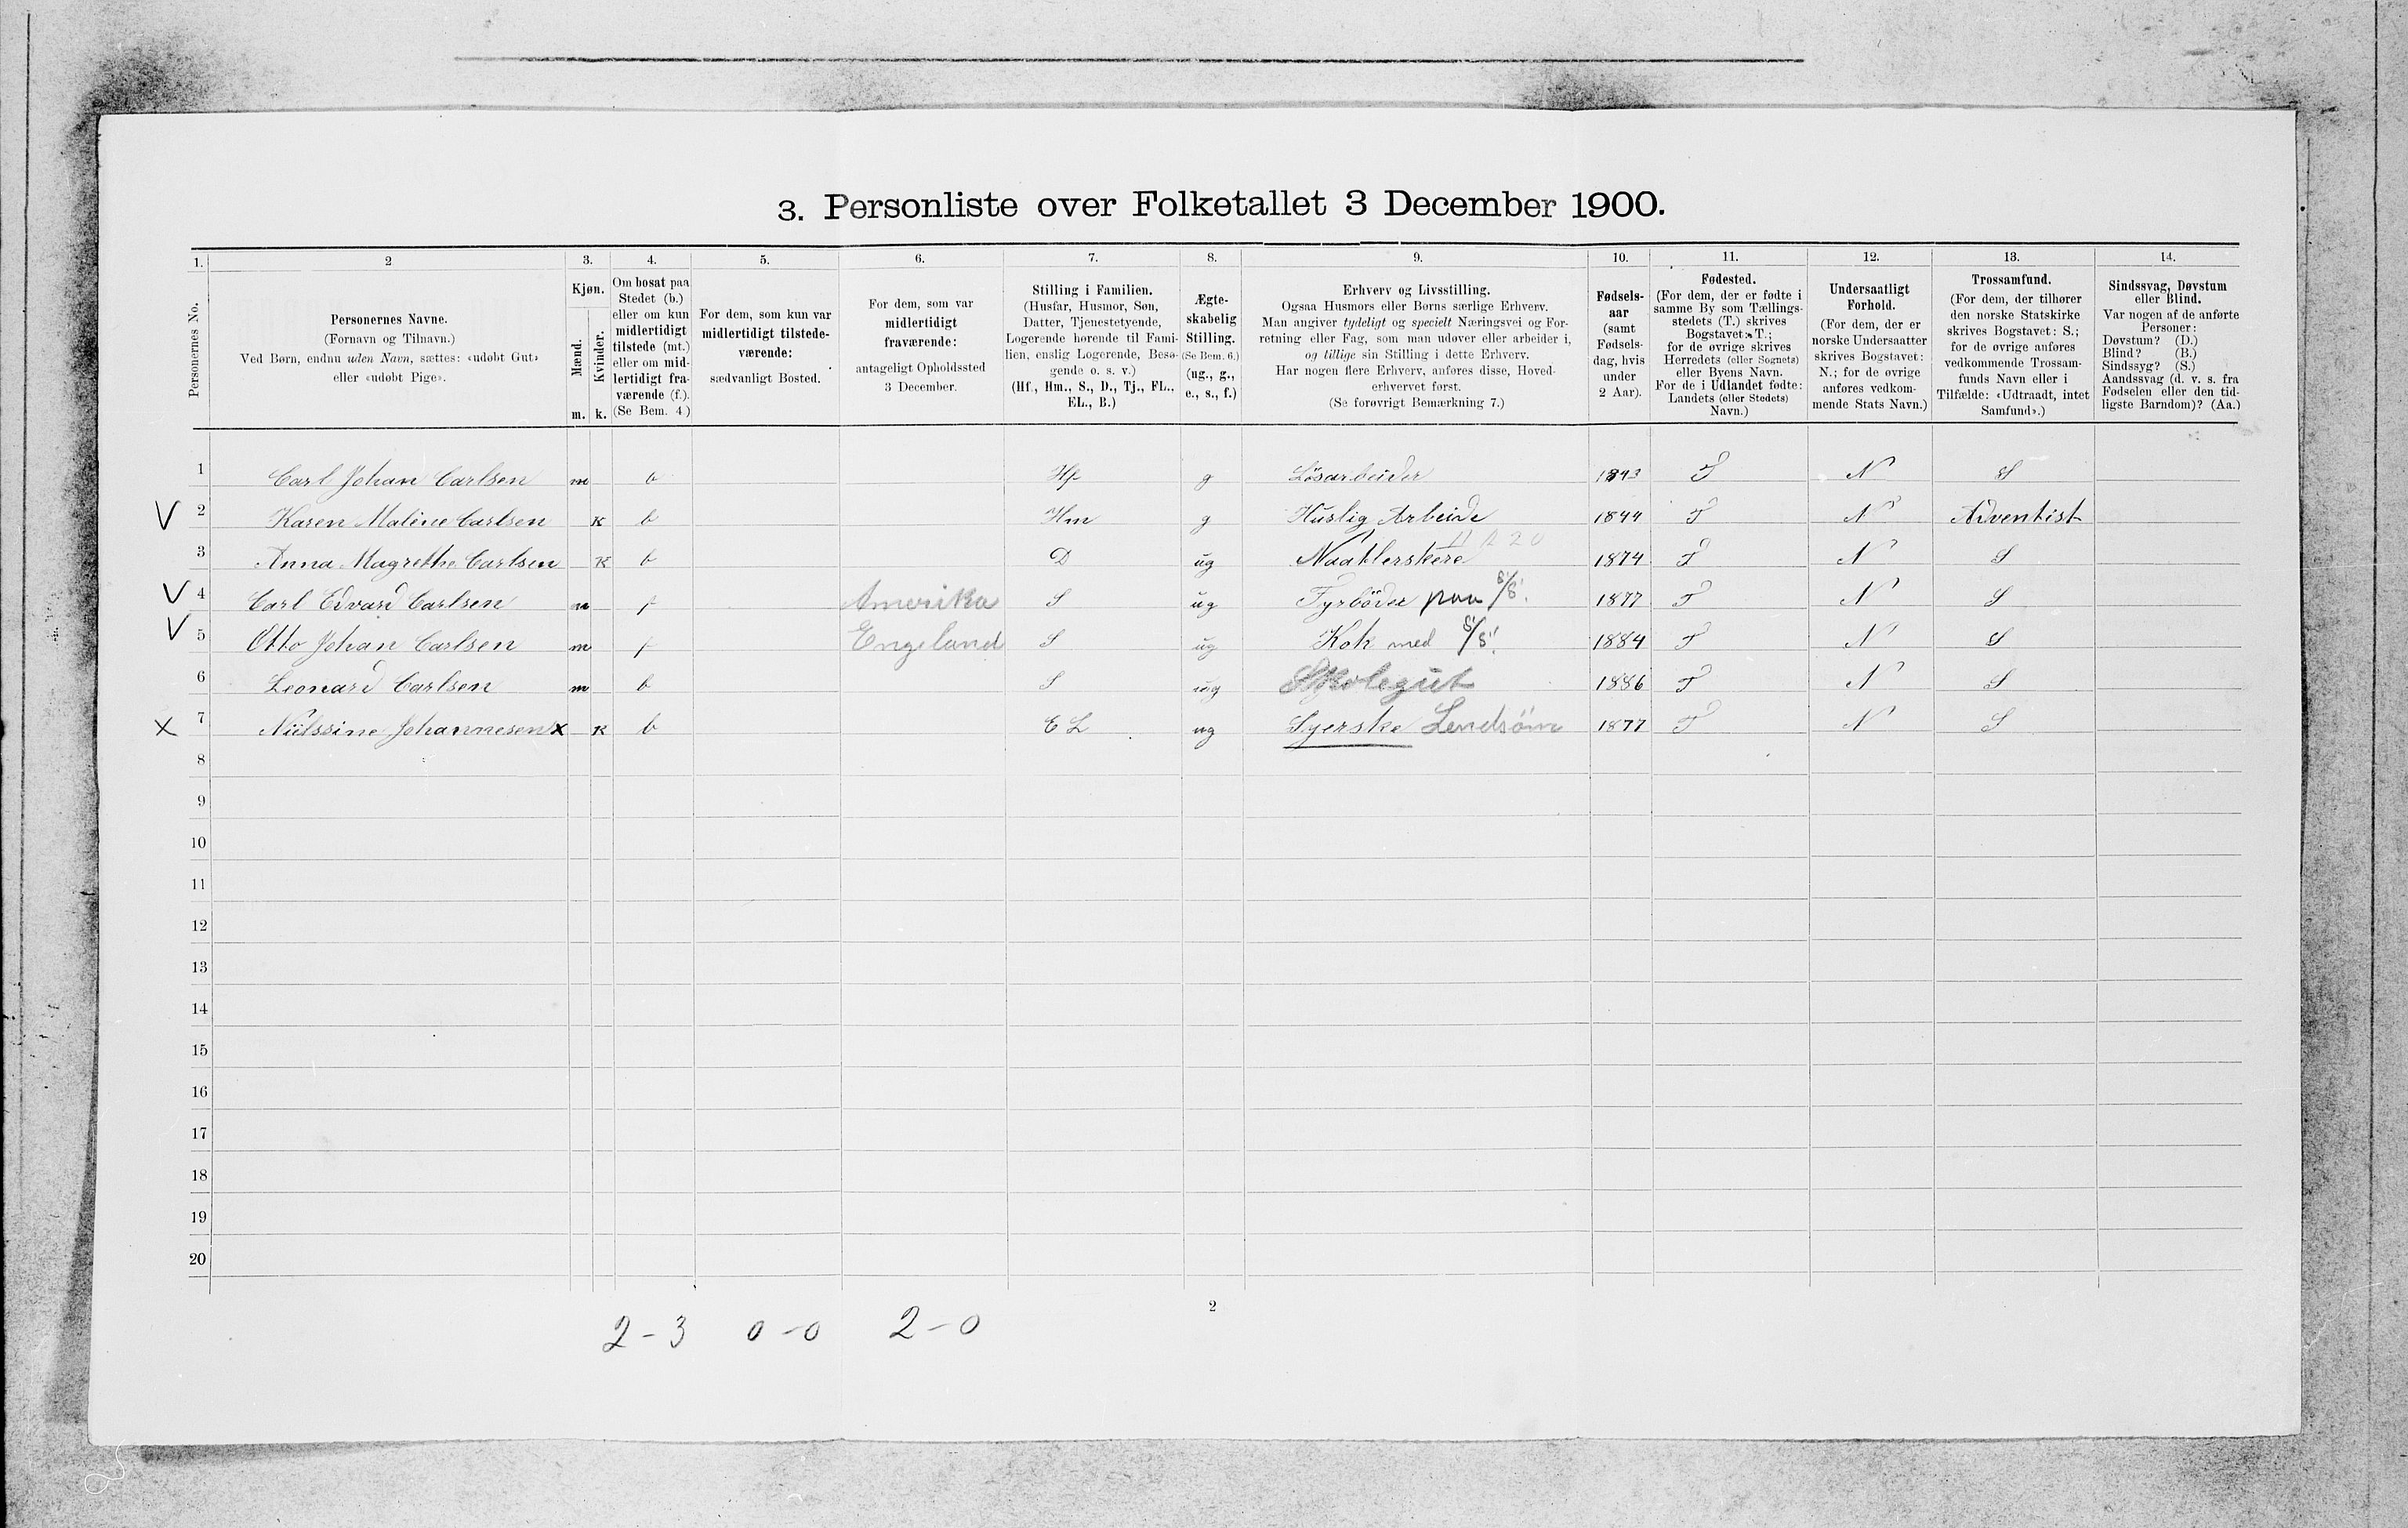 3. Personliste over Folketallet 3 December 1900.
1. 2 3. 4. 5. 6. 7. 8. 9. 10. 11. 12. 13. 14.
Personernes No.
Personernes Navne.
(Fornavn og Tilnavn.)
Ved Børn, endnu uden Navn, sættes: «udøbt Gut»
eller «udøbt Pige».
Kjøn.
Mænd.
Kvinder.
m. k.
Om bosat paa
Stedet (b.)
eller om kun
midlertidigt
tilstede (mt.)
eller om mid-
lertidigt fra-
værende (f.).
(Se Bem. 4.)
For dem, som kun var
midlertidigt tilstede-
værende:
sædvanligt Bosted.
For dem, som var
midlertidigt
fraværende:
antageligt Opholdssted
3 December.
Stilling i Familien.
(Husfar, Husmor, Søn,
Datter, Tjenestetyende,
Logerende hørende til Fami-
lien, enslig Logerende, Besø-
gende o. s. v.)
(Hf., Hm., S., D., Tj., FL.,
EL., B.)
Ægte-
skabelig
Stilling.
(Se Bem. 6.)
(ug., g.,
e., s., f.)
Erhverv og Livsstilling.
Ogsaa Husmors eller Børns særlige Erhverv.
Man angiver tydeligt og specielt Næringsvei og For-
retning eller Fag, som man udøver eller arbeider i,
og tillige sin Stilling i dette Erhverv.
Har nogen flere Erhverv, anføres disse, Hoved-
erhvervet først.
(Se forøvrigt Bemærkning 7.)
Fødsels-
aar
(samt
Fødsels-
dag, hvis
under
2 Aar).
Fødested.
(For dem, der er fødte i
samme By som Tællings-
stedets (T.) skrives
Bogstavet: T.;
for de øvrige skrives
Herredets (eller Sognets)
eller Byens Navn.
For de i Udlandet fødte:
Landets (eller Stedets)
Navn.)
Undersaatligt
Forhold.
(For dem, der er
norske Undersaatter
skrives Bogstavet:
N.; for de øvrige
anføres vedkom-
mende Stats Navn.)
Trossamfund.
(For dem, der tilhører
den norske Statskirke
skrives Bogstavet: S.;
for de øvrige anføres
vedkommende Trossam-
funds Navn eller i
Tilfælde: «Udtraadt, intet
Samfund».)
Sindssvag, Døvstum
eller Blind.
Var nogen af de anførte
Personer:
Døvstum? (D.)
Blind? (B.)
Sindssyg? (S.)
Aandssvag (d. v. s. fra
Fødselen eller den tid-
ligste Barndom)? (Aa.)
1 Carl Johan Carlsen m b Hf g Løsarbeider 1843 T N S
V 2 Karen Maline Carlsen K b Hm g Huslig Arbeide 1844 T N Adventist
3 Anna Magrethe Carlsen K b D ug Naatlerskere 1874 T N S
V 4 Carl Edvard Carlsen m f Amerika S ug Fyrböder paa S/S. 1877 T N S
V 5 Otto Johan Carlsen m f Engeland S ug Kok med S/S. 1884 T N S
6 Leonard Carlsen m b S ug Skolegut 1886 T N S
X 7 Niilssine Johannesen x K b E L ug Syerske Lendsöm 1877 T N S
8
9
10
11
12
13
14
15
16
17
18
19
20
2
2-3 0-0 2-0